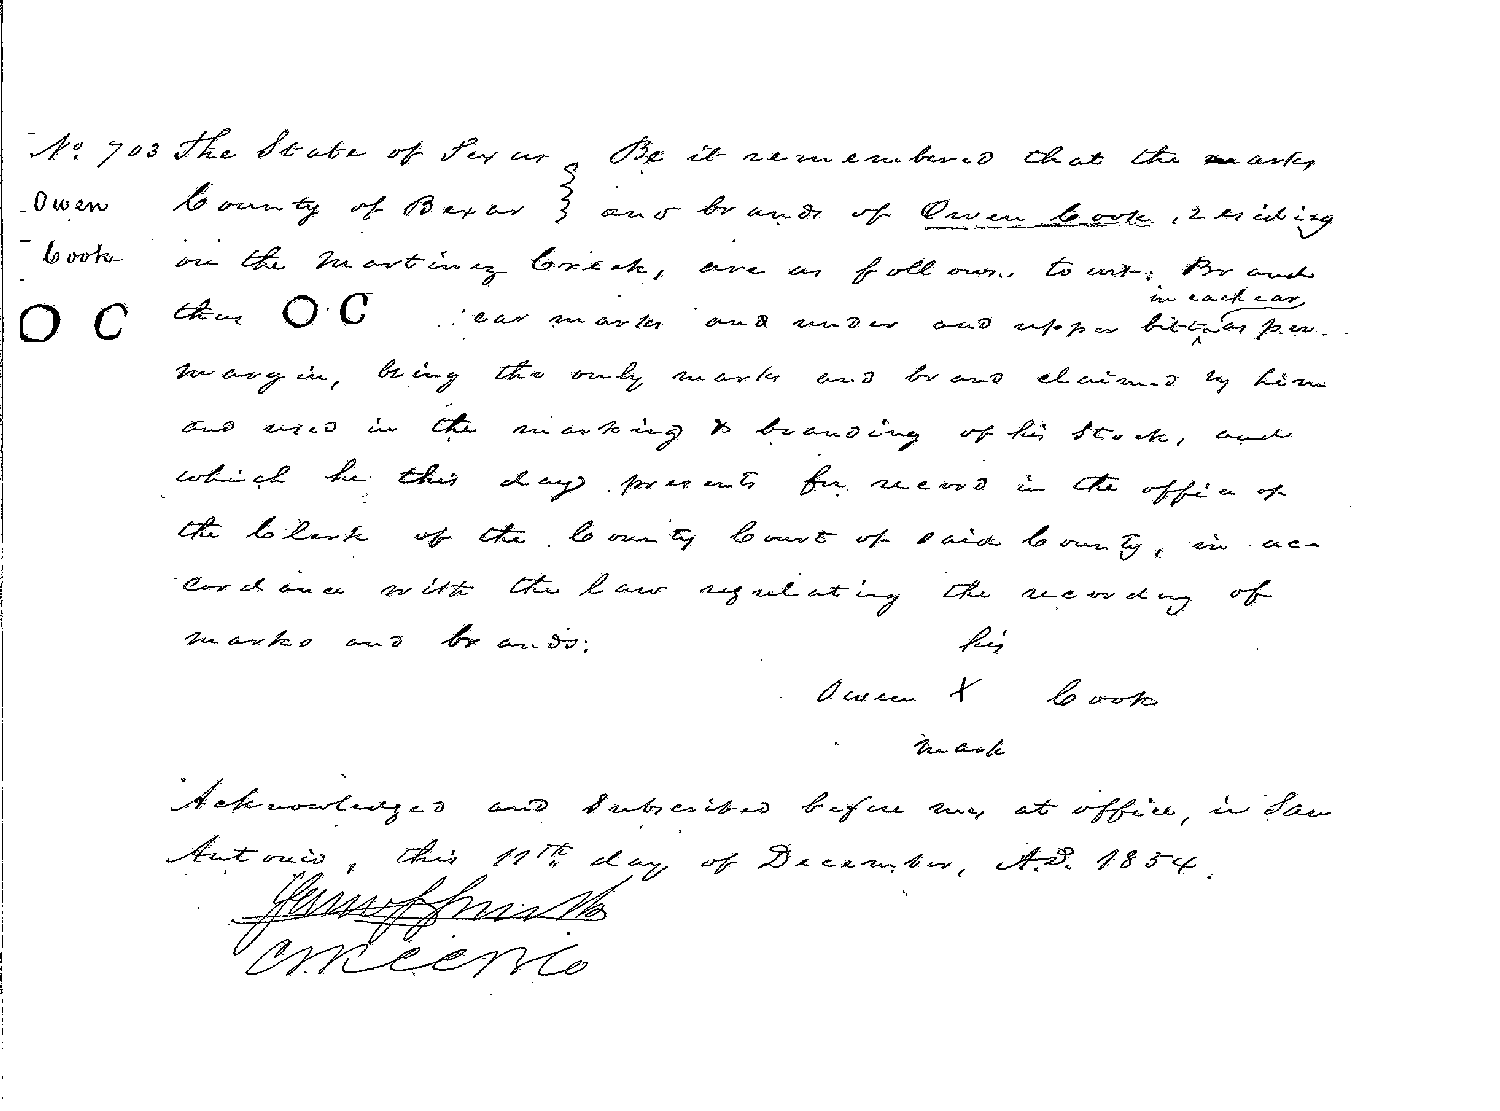 No. 703 The State of Texas } Be it remembered that the marks
Owen County of Bexar } and brands of Owen Cook, residing
Cook on the Martinez Creek, are as follows. to wit: Brand
in each ear
O C thus O C ear marks and under and upper bitt as per
margin, being the only marks and brand claimed by him
and used in the marking & branding of his Stock, and
which he this day presents for record in the office of
the Clerk of the County Court of said County, in ac-
cordance with the law regulating the recording of
marks and brands:
his
Owen X Cook
mark
Acknowledged and Subscribed before me, at office, in San
Antonio, this 11th day of December, A.D. 1854.